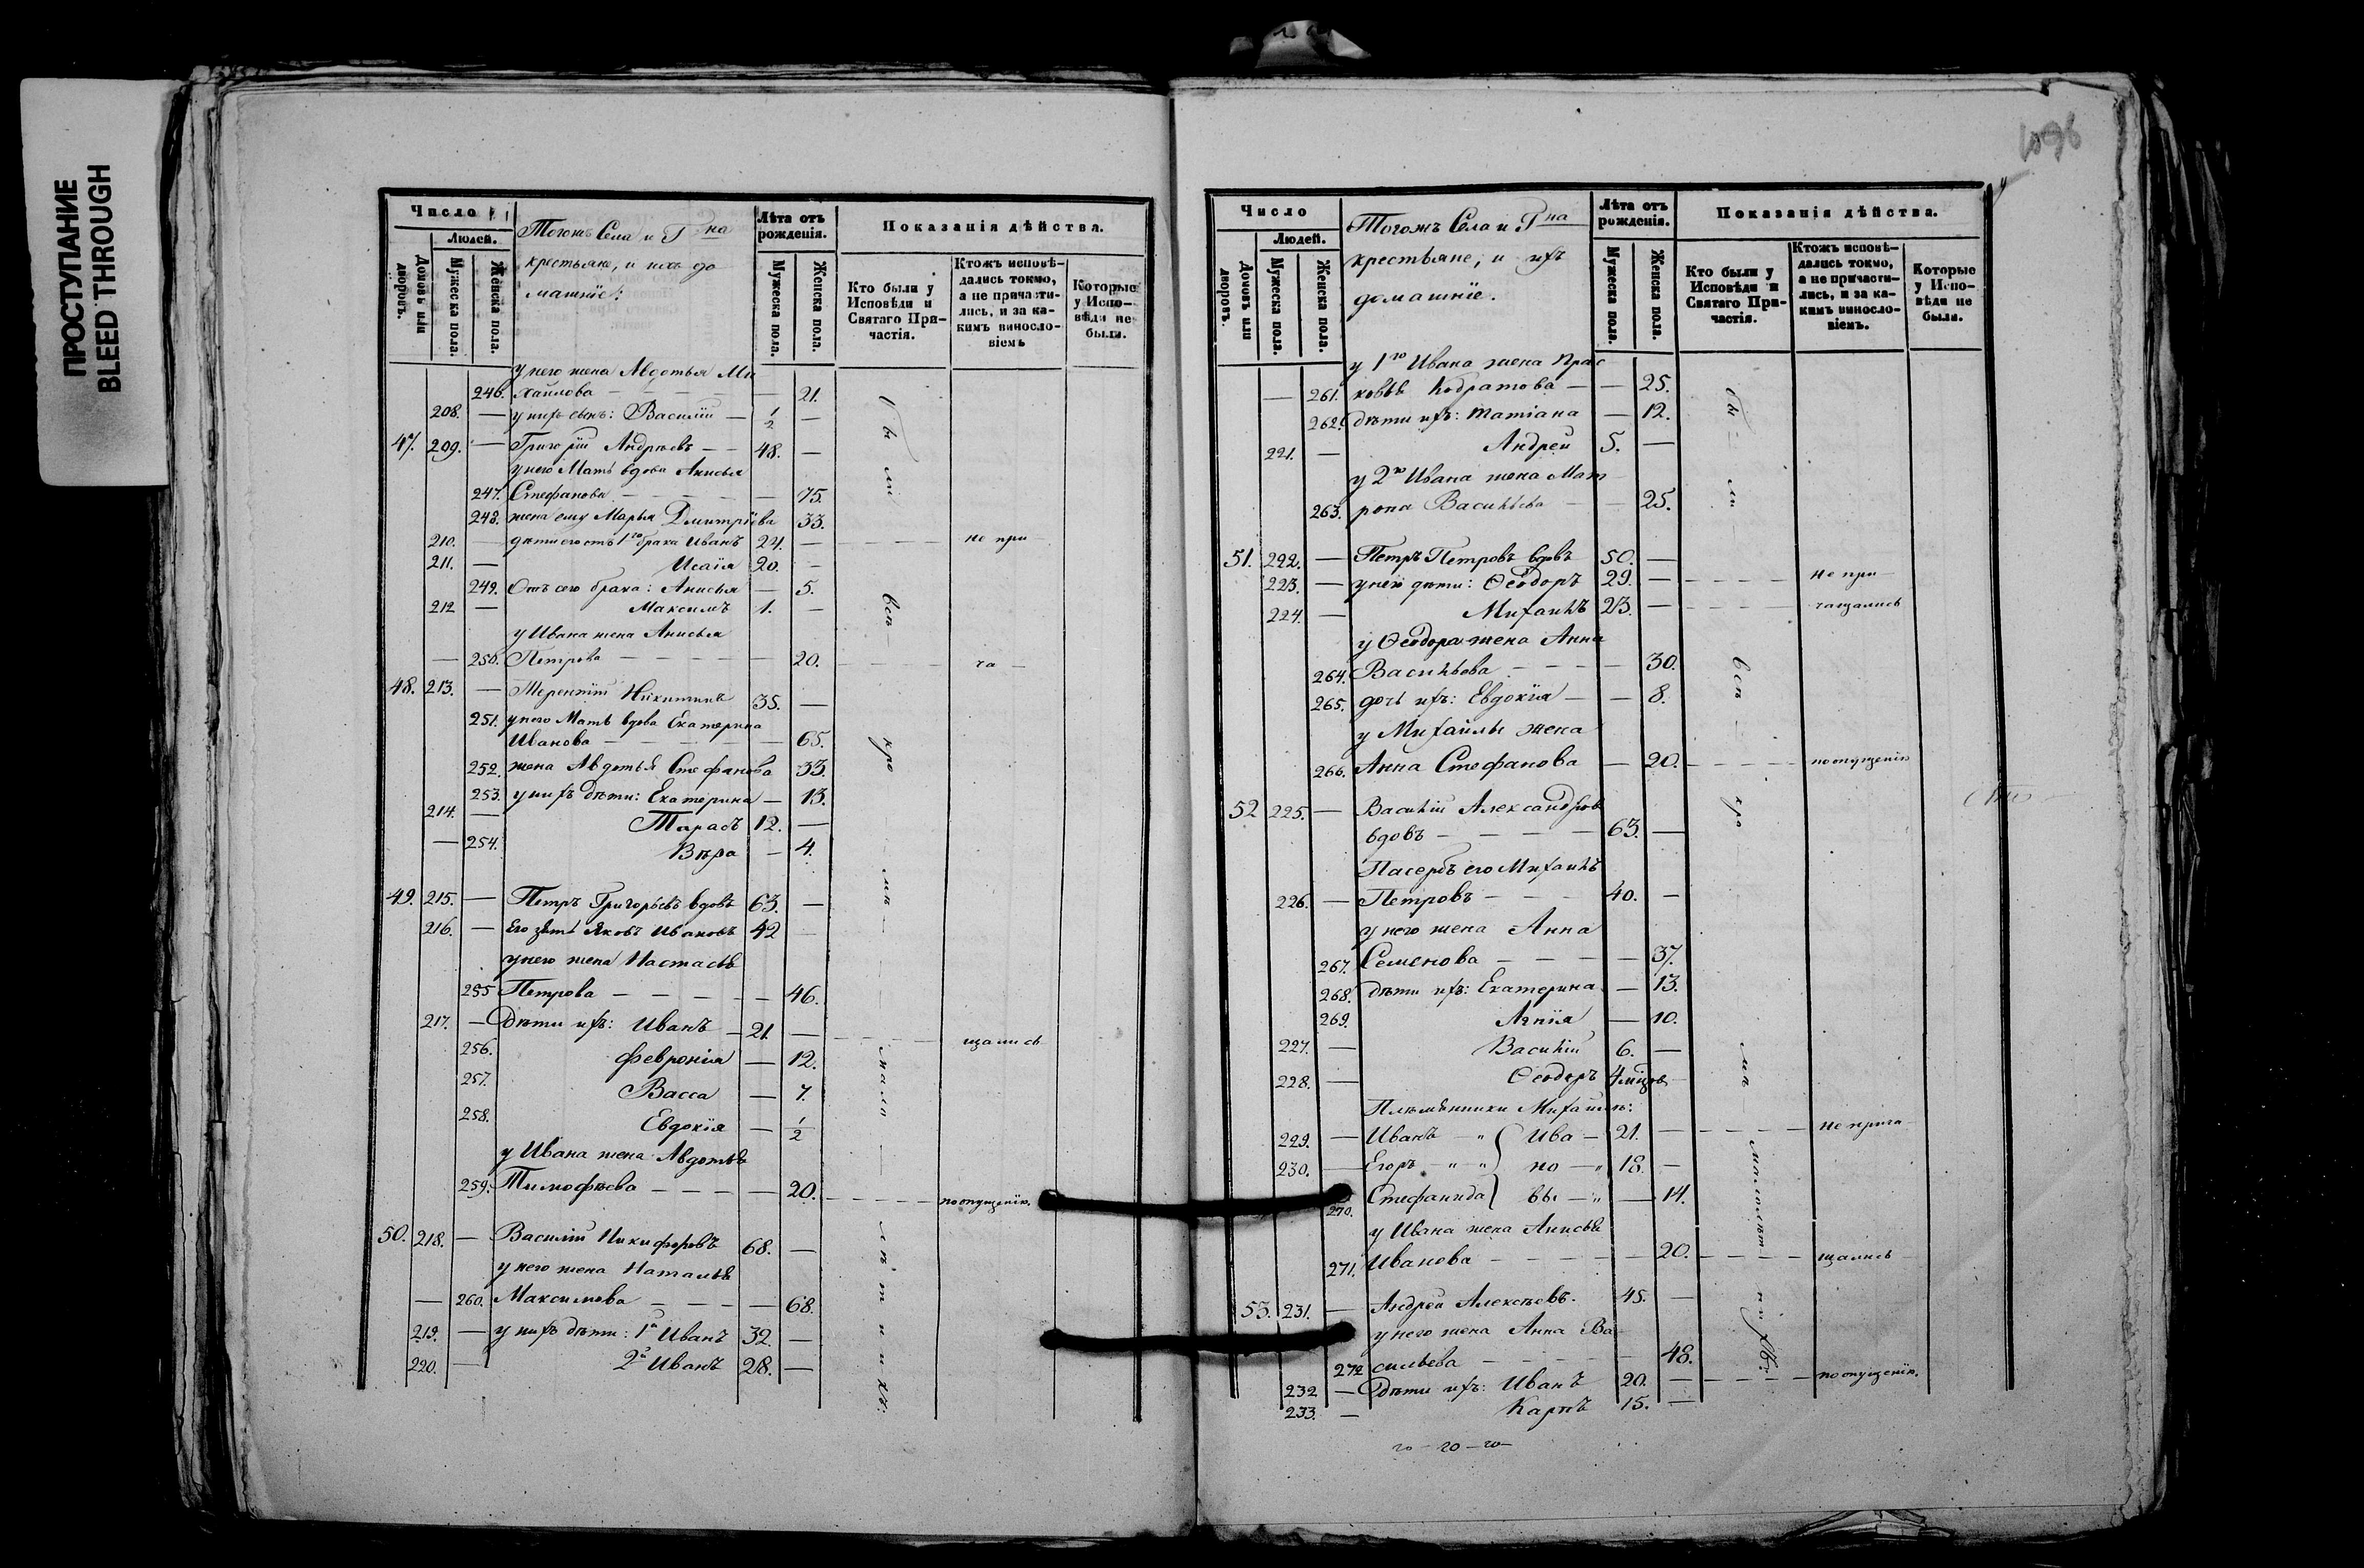 ПРОСТУПАНИЕ
BLEED THROUGH
Число
Людей.
Домовъ или дворовъ.
Мужеска пола.
Женска пола.
Тогожъ Села и Гна
крестьяне, и ихъ до
машніе:
Лѣта отъ рожденія.
Мужеска пола.
Женска пола.
Показанія дѣйства.
Кто были у Исповѣди и Святаго Причастія.
Ктожъ исповѣдались токмо, а не причастились, и за какимъ винословіемъ
Которые у Исповѣди не были.
у него жена Авдотья Ми
246. хайлова — — 21.
208. — у нихъ сынъ: Василій — 1/2 —
47. 209. — Григорій Андреевъ — 48. —
у него Мать вдова Анисья
247. Стефанова — — 75.
248. жена ему Марья Дмитріева 33.
210. — дѣти его отъ 1го брака Иванъ 24. — не при
211. — Исаія 20. —
249. Отъ сего брака: Анисья — 5.
212 — Максимъ 1. —
у Ивана жена Анисья
— 250. Петрова — — 20. ча —
48. 213. — Терентій Никитинъ 35. —
251. у него Мать вдова Екатерина
Иванова — — 65.
252. жена Авдотья Стефанова 33.
253. у нихъ дѣти: Екатерина — 13.
214. — Тарасъ 12. —
— 254. Вѣра — 4.
49. 215. — Петръ Григорьевъ вдовъ 63. —
216. — Его зять Яковъ Ивановъ 42 —
у него жена Настасья
255 Петрова — — 46.
217. — Дѣти ихъ: Иванъ — 21. — щались
256. Февронія — 12.
257. Васса — 7.
258. Евдокія — 1/2
у Ивана жена Авдотья
259. Тимофѣева — — 20. по опущенію.
50. 218. — Василій Никифоровъ 68. —
у него жена Наталья
— 260. Максимова — — 68.
219. — у нихъ дѣти: 1й Иванъ 32. —
220. — 2й Иванъ 28. —
бы
ли
всѣ
кро
мѣ
мало
лѣтнихъ:
1096
Число
Людей.
Домовъ или дворовъ.
Мужеска пола.
Женска пола.
Тогожъ Села и Гна
крестьяне, и ихъ
домашніе.
Лѣта отъ рожденія.
Мужеска пола.
Женска пола.
Показанія дѣйства.
Кто были у Исповѣди и Святаго Причастія.
Ктожъ исповѣдались токмо, а не причастились, и за какимъ винословіемъ.
Которые у Исповѣди не были.
у 1го Ивана жена Прас
— 261. ковья Кодратова — — 25.
262. дѣти ихъ: Татіана — 12.
221. — Андрей 5. —
у 2го Ивана жена Мат
263. рона Васильева — — 25.
51. 222. — Петръ Петровъ вдовъ 50. —
223. — у него дѣти: Ѳеодоръ 29. — не при —
224. — Михаилъ 23. — чащались
у Ѳеодора жена Анна
264. Васильева — — 30.
265. дочь ихъ: Евдокія — — 8.
у Михайлы жена
266. Анна Стефанова — 20. по опущенію
52 225. — Василій Александровъ
вдовъ — — 63. —
Пасербъ его Михаилъ
226. — Петровъ — — 40. —
у него жена Анна
267. Семенова — — 37.
268. дѣти ихъ: Екатерина — 13.
269. Агпія — 10.
227. — Василій 6. —
228. — Ѳеодоръ 4 мѣцов —
Племянники Михаилы:
229. — Иванъ — " Ива — 21. — не прича
230. — Егоръ — " " но — " 18. —
270. Стефанида вы — " — 14.
у Ивана жена Анисья
271. Иванова — — 20. щались
53. 231. — Андрей Алексѣевъ. 45. —
у него жена Анна Ва
272 сильева — — 48.
232 — Дѣти ихъ: Иванъ 20. — по опущенію.
233. — Карпъ 15. —
бы
ли
всѣ
кро
мѣ
малолѣт
нихъ: